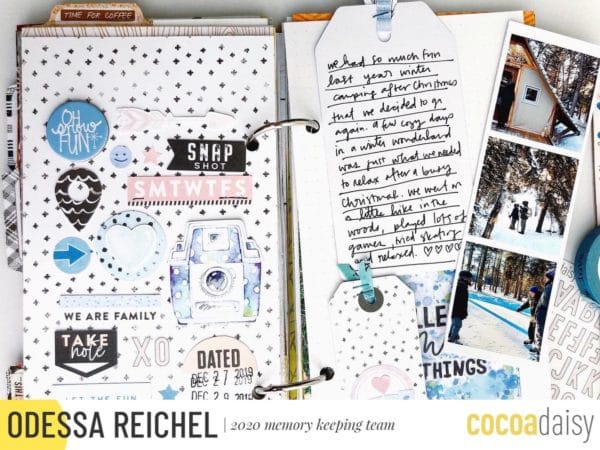 TIME FOR COFFEE
OH
snow
FUN
SNAP
SHOT
SMTWTFS
WE ARE FAMILY
TAKE
note
XO
DATED
DEC 27 2019
DEC 29 2019
LET THE FUN
we had so much fun
last years winter
camping after Christmas
that we decided to go
again. A few cozy days
in a winter wonderland
was just what we needed
to relax after a busy
Christmas. We went on
a little hike in the
woods, played lots of
games, tried skating
and relaxed. ♡♡♡♡
THINGS
ODESSA REICHEL | 2020 memory keeping team
cocoadaisy